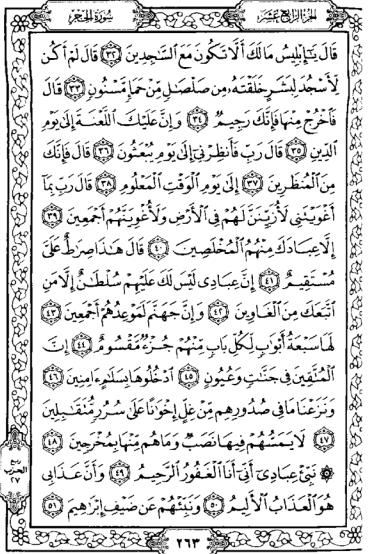 الجزء الرابع عشر
سورة الحجر
قَالَ يَٰٓإِبْلِيسُ مَالَكَ أَلَّا تَكُونَ مَعَ ٱلسَّٰجِدِينَ ٣٢ قَالَ لَمْ أَكُن
لِّأَسْجُدَ لِبَشَرٍ خَلَقْتَهُۥ مِن صَلْصَٰلٍ مِّنْ حَمَإٍ مَّسْنُونٍ ٣٣ قَالَ
فَٱخْرُجْ مِنْهَا فَإِنَّكَ رَجِيمٌ ٣٤ وَإِنَّ عَلَيْكَ ٱللَّعْنَةَ إِلَىٰ يَوْمِ
ٱلدِّينِ ٣٥ قَالَ رَبِّ فَأَنظِرْنِىٓ إِلَىٰ يَوْمِ يُبْعَثُونَ ٣٦ قَالَ فَإِنَّكَ
مِنَ ٱلْمُنظَرِينَ ٣٧ إِلَىٰ يَوْمِ ٱلْوَقْتِ ٱلْمَعْلُومِ ٣٨ قَالَ رَبِّ بِمَآ
أَغْوَيْتَنِى لَأُزَيِّنَنَّ لَهُمْ فِى ٱلْأَرْضِ وَلَأُغْوِيَنَّهُمْ أَجْمَعِينَ ٣٩
إِلَّا عِبَادَكَ مِنْهُمُ ٱلْمُخْلَصِينَ ٤٠ قَالَ هَٰذَا صِرَٰطٌ عَلَىَّ
مُسْتَقِيمٌ ٤١ إِنَّ عِبَادِى لَيْسَ لَكَ عَلَيْهِمْ سُلْطَٰنٌ إِلَّا مَنِ
ٱتَّبَعَكَ مِنَ ٱلْغَاوِينَ ٤٢ وَإِنَّ جَهَنَّمَ لَمَوْعِدُهُمْ أَجْمَعِينَ ٤٣
لَهَا سَبْعَةُ أَبْوَٰبٍ لِّكُلِّ بَابٍ مِّنْهُمْ جُزْءٌ مَّقْسُومٌ ٤٤ إِنَّ
ٱلْمُتَّقِينَ فِى جَنَّٰتٍ وَعُيُونٍ ٤٥ ٱدْخُلُوهَا بِسَلَٰمٍ ءَامِنِينَ ٤٦
وَنَزَعْنَا مَا فِى صُدُورِهِم مِّنْ غِلٍّ إِخْوَٰنًا عَلَىٰ سُرُرٍ مُّتَقَٰبِلِينَ
٤٧ لَا يَمَسُّهُمْ فِيهَا نَصَبٌ وَمَا هُم مِّنْهَا بِمُخْرَجِينَ ٤٨
۞ نَبِّئْ عِبَادِىٓ أَنِّىٓ أَنَا ٱلْغَفُورُ ٱلرَّحِيمُ ٤٩ وَأَنَّ عَذَابِى
هُوَ ٱلْعَذَابُ ٱلْأَلِيمُ ٥٠ وَنَبِّئْهُمْ عَن ضَيْفِ إِبْرَٰهِيمَ ٥١
ربع
الحزب
٢٧
٢٦٣